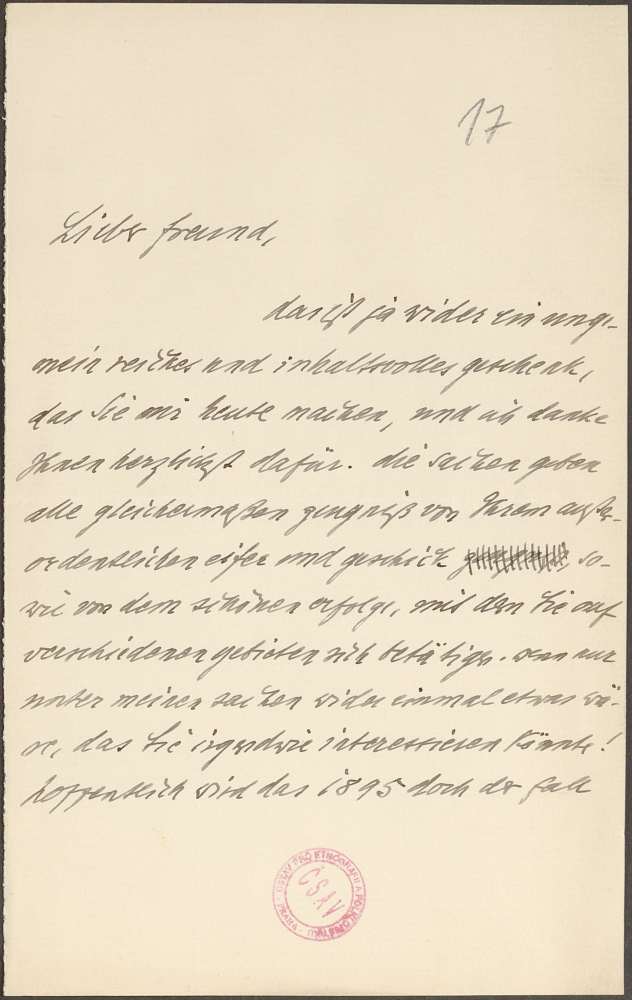 17
Lieber freund,
das ist ja wider ein unge-
mein reiches und inhaltsvolles geschenk,
das Sie mir heute machen, und ich danke
Ihnen herzlichst dafür. die sachen geben
alle gleichermaßen zeugniß von Ihrem außer-
ordentlichen eifer und geschick, so-
wie von dem schönen erfolge, mit dem Sie auf
verschiedenen gebieten sich betätigen. wenn nur
unter meinen sachen wider einmal etwas wä-
re, das Sie irgendwie interessieren könnte!
hoffentlich wird das 1895 doch der fall
ÚSTAV PRO ETNOGRAFII A FOLKLORISTIKU
ČSAV
PRAHA